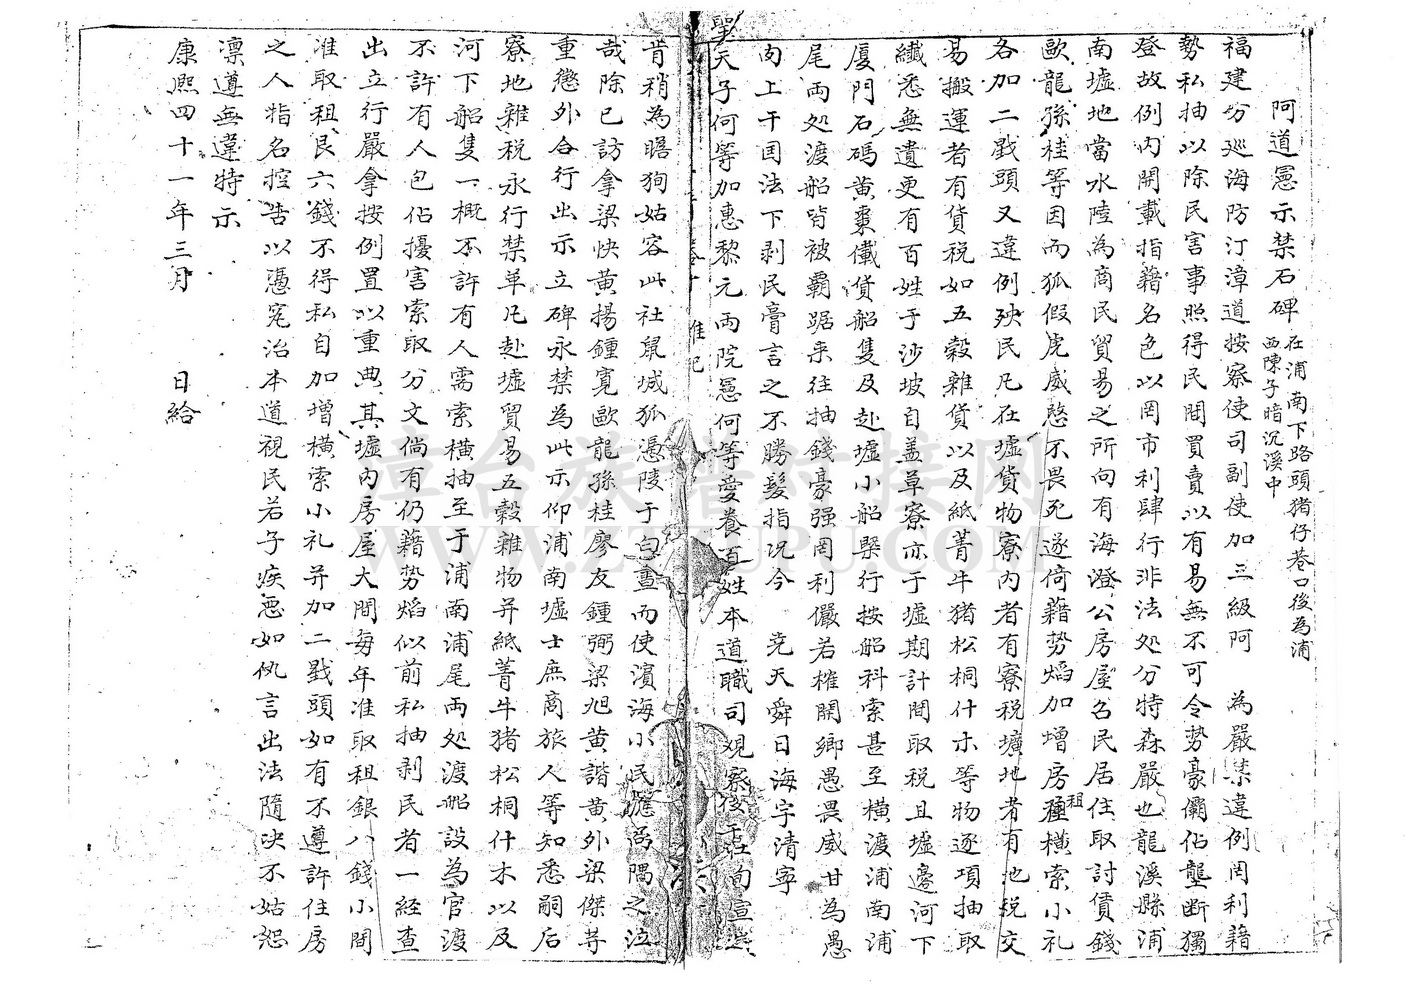 阿道憲示禁石碑 在浦南下路頭猪仔巷口後為浦
西陳子暗沉溪中
福建分巡海防汀漳道按察使司副使加三級阿　為嚴禁違例罔利藉
勢私抽以除民害事照得民間買賣以有易無不可令勢豪霸佔壟断獨
登故例内開載指籍名色以罔市利肆行非法处分特森嚴也龍溪縣浦
南墟地當水陸為商民貿易之所向有海澄公房屋名民居住取討債錢
歐龍孫桂等因而狐假虎威憨不畏死遂倚藉勢熖加增房租橫索小礼
各加二戥頭又違例殃民凡在墟貨物寮内者有寮税壙地者有地税交
易搬運者有貨税如五穀雜貨以及紙菁牛猪松桐什木等物逐項抽取
纖悉無遺更有百姓于沙坡自盖草寮亦于墟期計間取税且墟邊河下
厦門石碼黄棗儎貨船隻及赴墟小船槩行按船科索甚至横渡浦南浦
尾両处渡船皆被霸踞来往抽錢豪强罔利儼若榷関鄉愚畏威甘為愚
肉上干囯法下剥民膏言之不勝髮指况今　尭天舜日海宇清寧
聖天子何等加惠黎元両院憲何等愛養百姓本道職司观察後于在向宣
昔稍為瞻狥姑容此社鼠城狐憑陵于白晝而使濵海小民隅之泣
哉除已訪拿梁快黄揚鍾寛歐龍孫桂廖友鍾弼梁旭黄諧黄外梁傑䓁
重懲外合行出示立碑永禁為此示仰浦南墟士庶商旅人等知悉嗣后
寮地雜税永行禁革凡赴墟貿易五穀雜物并紙菁牛猪松桐什木以及
河下船隻一概不許有人需索横抽至于浦南浦尾両处渡船設為官渡
不許有人包佔擾害索取分文倘有仍藉势焰似前私抽剥民者一經查
出立行嚴拿按例置以重典其墟内房屋大間每年准取租銀八錢小間
准取租艮六錢不得私自加增横索小礼并加二戥頭如有不遵許住房
之人指名控告以憑宪治本道視民若子疾惡如仇言出法隨决不姑恕
凛遵無違特示
康熙四十一年三月　　日給
雜記
泣台族谱对接网
WWW.ZTZUPU.COM